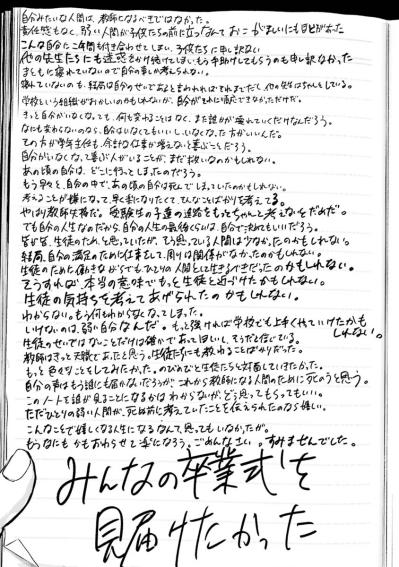 自分みたいな人間は、教師になるべきではなかった。
責任感もなく、弱い人間が子供たちの前に立つなんておこがましいにも程があった
こんな自分に2年間も付き合わせてしまい、子供たちに申し訳ない
他の先生たちにも迷惑をかけ続けてしまい、もう手助けしてもらうのも申し訳なかった
まともに寝れていないので自分の事しか考えられない。
寝れていないのも、結局は自分のせいであると言われればそれまでだし、他の先生はちゃんとしている。
学校という組織がおかしいのかもしれないが、自分がそれに順応できなかっただけだ。
きっと自分がいなくなっても、何も変わることはなく、また誰かが壊れていくだけなんだろう。
なにも変わらないのなら、自分はいなくてもいいし、いなくなった方がいいんだ。
その方が学年主任も、余計な仕事が増えないと喜ぶことだろう。
自分がいなくなって喜ぶ人がいることが、まだ救いなのかもしれない。
あの頃の自分は、どこに行ってしまったのだろう。
もう早々と、自分の中で、あの頃の自分は死んでしまっていたのかもしれない。
考えることが嫌になって、早く楽になりたくて、ひなことばかり考えてる。
やはり教師失格だ。受験生の子達の進路をもっとちゃんと考えないとだめだ。
でも自分の人生なのだから、自分の人生の最後くらいは、自分で決めてもいいだろう。
皆が皆、生徒のため、と思っていたが、そう思っている人間は少なかったのかもしれない。
結局、自分の満足のために仕事をして、周りは関係がなかったのかもしれない。
生徒のためと働きながらでも、ひとりの人間として生きるべきだったのかもしれない。
そうすれば、本当の意味でもっと生徒と近づけたかもしれない。
生徒の気持ちを考えてあげられたのかもしれない。
わからない。もう何もわからなくなってしまった。
いけないのは、弱い自分なんだ。もっと強ければ学校でも上手くやっていけたかもしれない。
生徒のせいではないことだけは確かであってほしいし、そうだと信じている。
教師はきっと天職であったと思う。生徒たちにも教わることばかりだった。
もっと色々なことをしてみたかった。のびのびと生徒たちと対面していきたかった。
自分の声はもう誰にも届かないだろうが、これから教師になる人間のために死のうと思う。
この一人を誰が見ることになるかはわからないが、どう思ってもらってもいい。
ただひとりの弱い人間が、死ぬ前に考えていたことを伝えられたなら嬉しい。
こんなことで嬉しくなる人生になるなんて、思ってもいなかったが。
もうなにもかもおわらせて楽になろう。ごめんなさい。すみませんでした。
みんなの卒業式を
見届けたかった